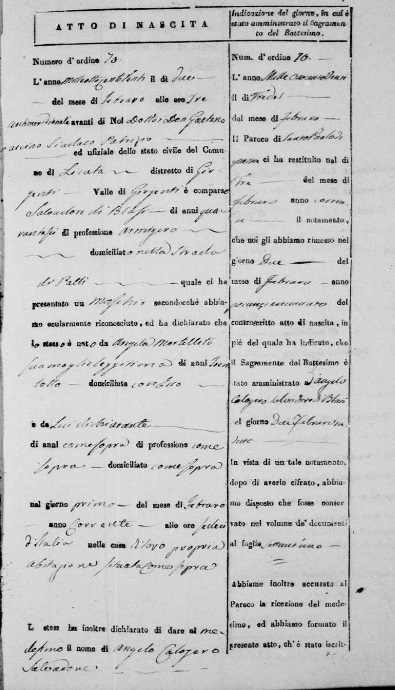 ATTO DI NASCITA
Numero d'ordine 70.
L'anno mille ottocento venti il di due
del mese di Febraro alle ore Tre
avanti di Noi Dottor Don Gaetano
Sindaco Patrizio
ed ufiziale dello stato civile del Comu
no di Licata distretto di Gir
genti Valle di Girgenti è comparso
Salvadore di Blasi di anni qua
di professione
domiciliato nella Strada
di quale ci ha
presentato un Maschio secondocchè abbia-
mo ocularmente riconosciuto, ed ha dichiarato che
lo stesso è nato da Angela
sua moglie leggittima di anni Tren
totto domiciliata con esso
e da Lui dichiarante
di anni come sopra di professione come
sopra domiciliato come sopra
nel giorno primo del mese di Febraro
anno Corrente alle ore
d'Italia nella casa di loro propria
abitazione situata come sopra
L' stess ha inoltre dichiarato di dare al me-
desimo il nome di Angelo Calogero
Salvadore.
Indicazione del giorno, in cui è
stato amministrato il Sagramen
to del Battesimo.
Num. d'ordine 70.
L'anno Mille
il di Tre del
del mese di Febraro
Il Paroco di
ci ha restituito nel di
Tre del mese di
Febraro anno corren
te il notamento,
che noi gli abbiamo rimesso nel
giorno Due del
mese di Febraro anno
del
controscritto atto di nascita, in
piè del quale ha indicato, che
il Sagramento del Battesimo è
stato amministrato a
Calogero Salvadore di Blasi
el giorno Due Febraro
In vista di un tale notamento,
dopo di averlo cifrato, abbia-
mo disposto che fosse conser
vato nel volume de' documenti
al foglio
Abbiamo inoltre accusato al
Paroco la ricezione del mede-
simo, ed abbiamo formato il
presente atto, ch'è stato iscrit-